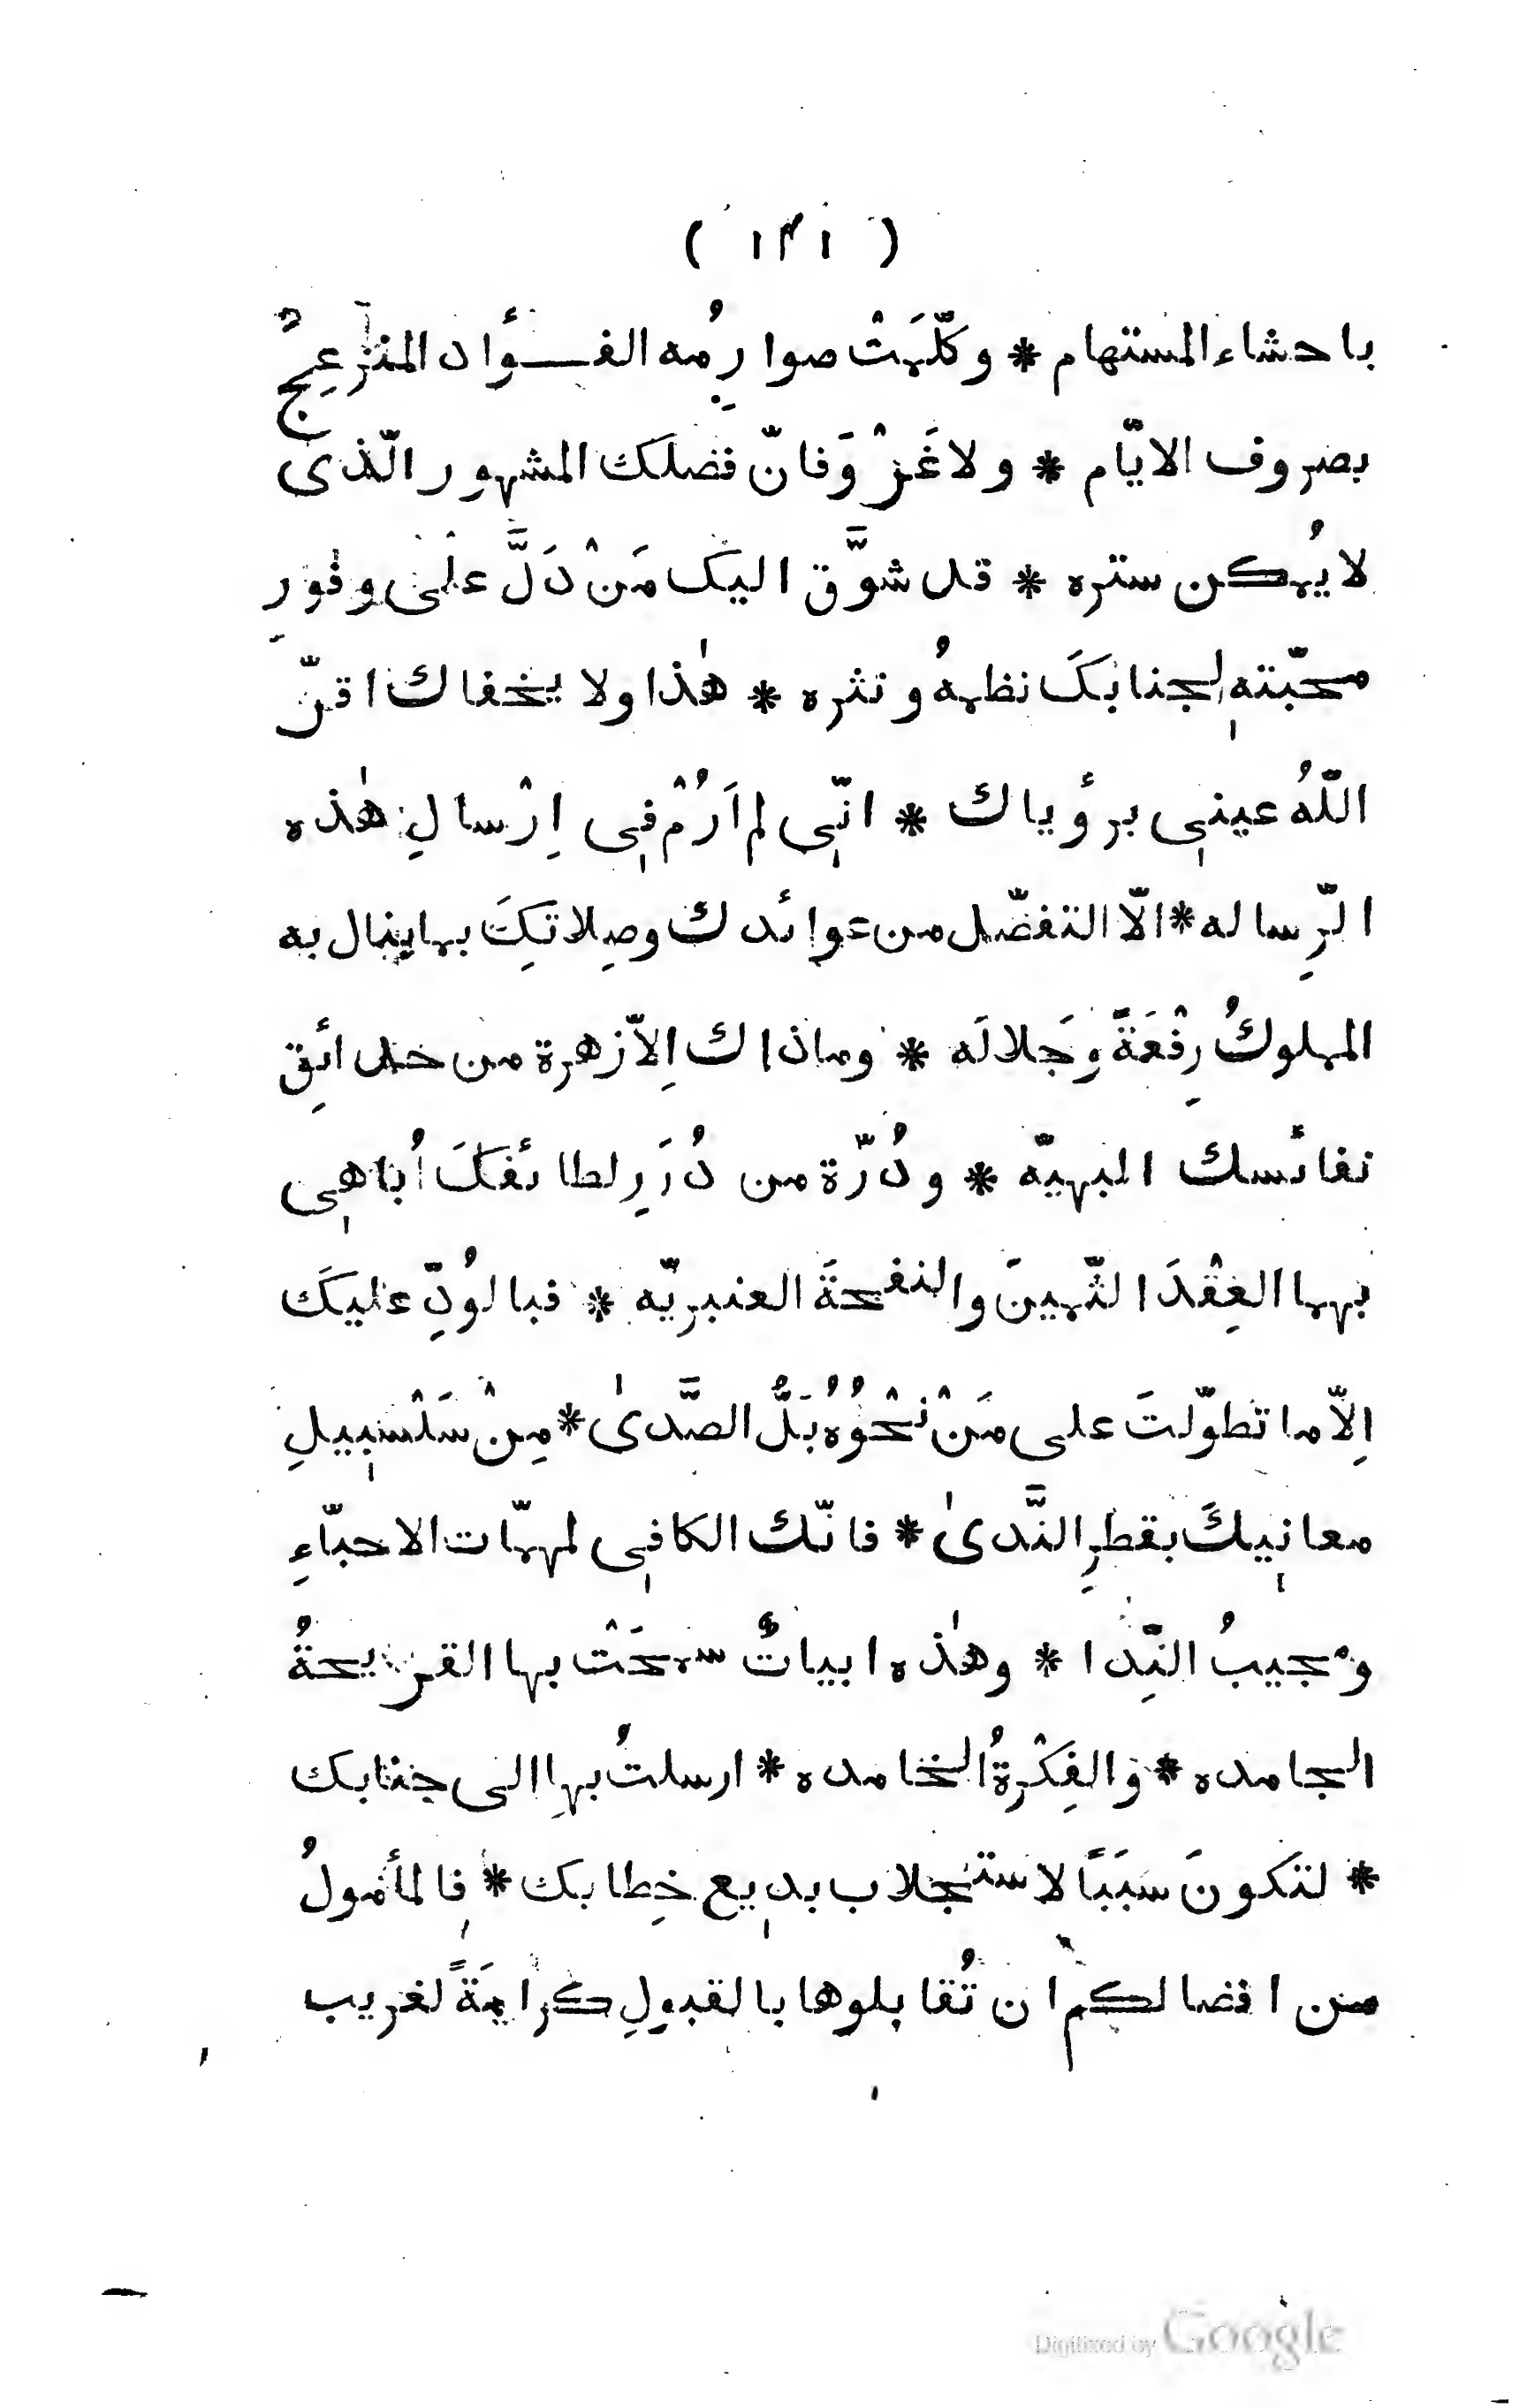 ( ١٣١ )
باحشاء المستهام * وكلّمَتْ صوارِمُه الفــؤاد المنزَعِجُ
بصروف الايّام * ولا غَرْوَ فانّ فضلك المشهور الّذى
لا يُمكن ستره * قد شوَّق اليك مَنْ دَلَّ علٰى وفورِ
محبّتهٖ لجنابكَ نظمهُ ونثره * هٰذا ولا يخفاك اقرّ
اللّهُ عينى برؤياك * انّى لم اَرُمْ فى اِرْسالِ هٰذه
الرِّساله * الّا التفضّل من عوائدك وصِلاتِكَ بما ينال به
المملوكُ رِفْعَةً وَجَلالَه * وماذاك اِلاّ زهرة من حدائِق
نفائسك البهيّه * ودُرّة من دُرَرِ لطائفكَ اُباهى
بهما العِقْدَ الثّمينَ والنفحةَ العنبريّه * فبالوُدِّ عليكَ
اِلاّ ما تطوّلتَ على مَنْ نَحْوُهُ بَلُّ الصَّدىٰ * مِنْ سَلْسَبِيلِ
معانِيكَ بقطرِ النَّدىٰ * فانّك الكافى لمهمّات الاحبّاءِ
ومجيبُ النِّدا * وهٰذه ابياتٌ سمحَتْ بها القريحةُ
الجامده * وَالفِكْرةُ الخامده * ارسلتُ بها الى جنابك
* لتكونَ سَبَبًا لاستجلاب بديع خِطابك * فالمأمولُ
من افضالكم ان تُقابلوها بالقبولِ كرامَةً لغريب
Digitized by Google